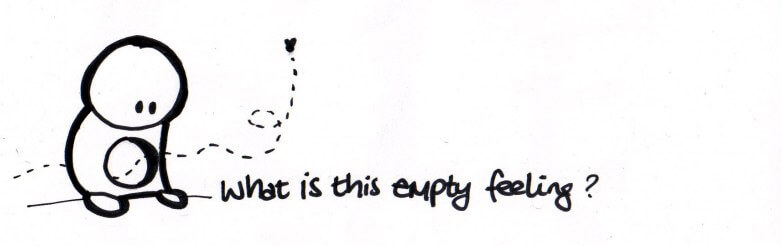 What is this empty feeling?